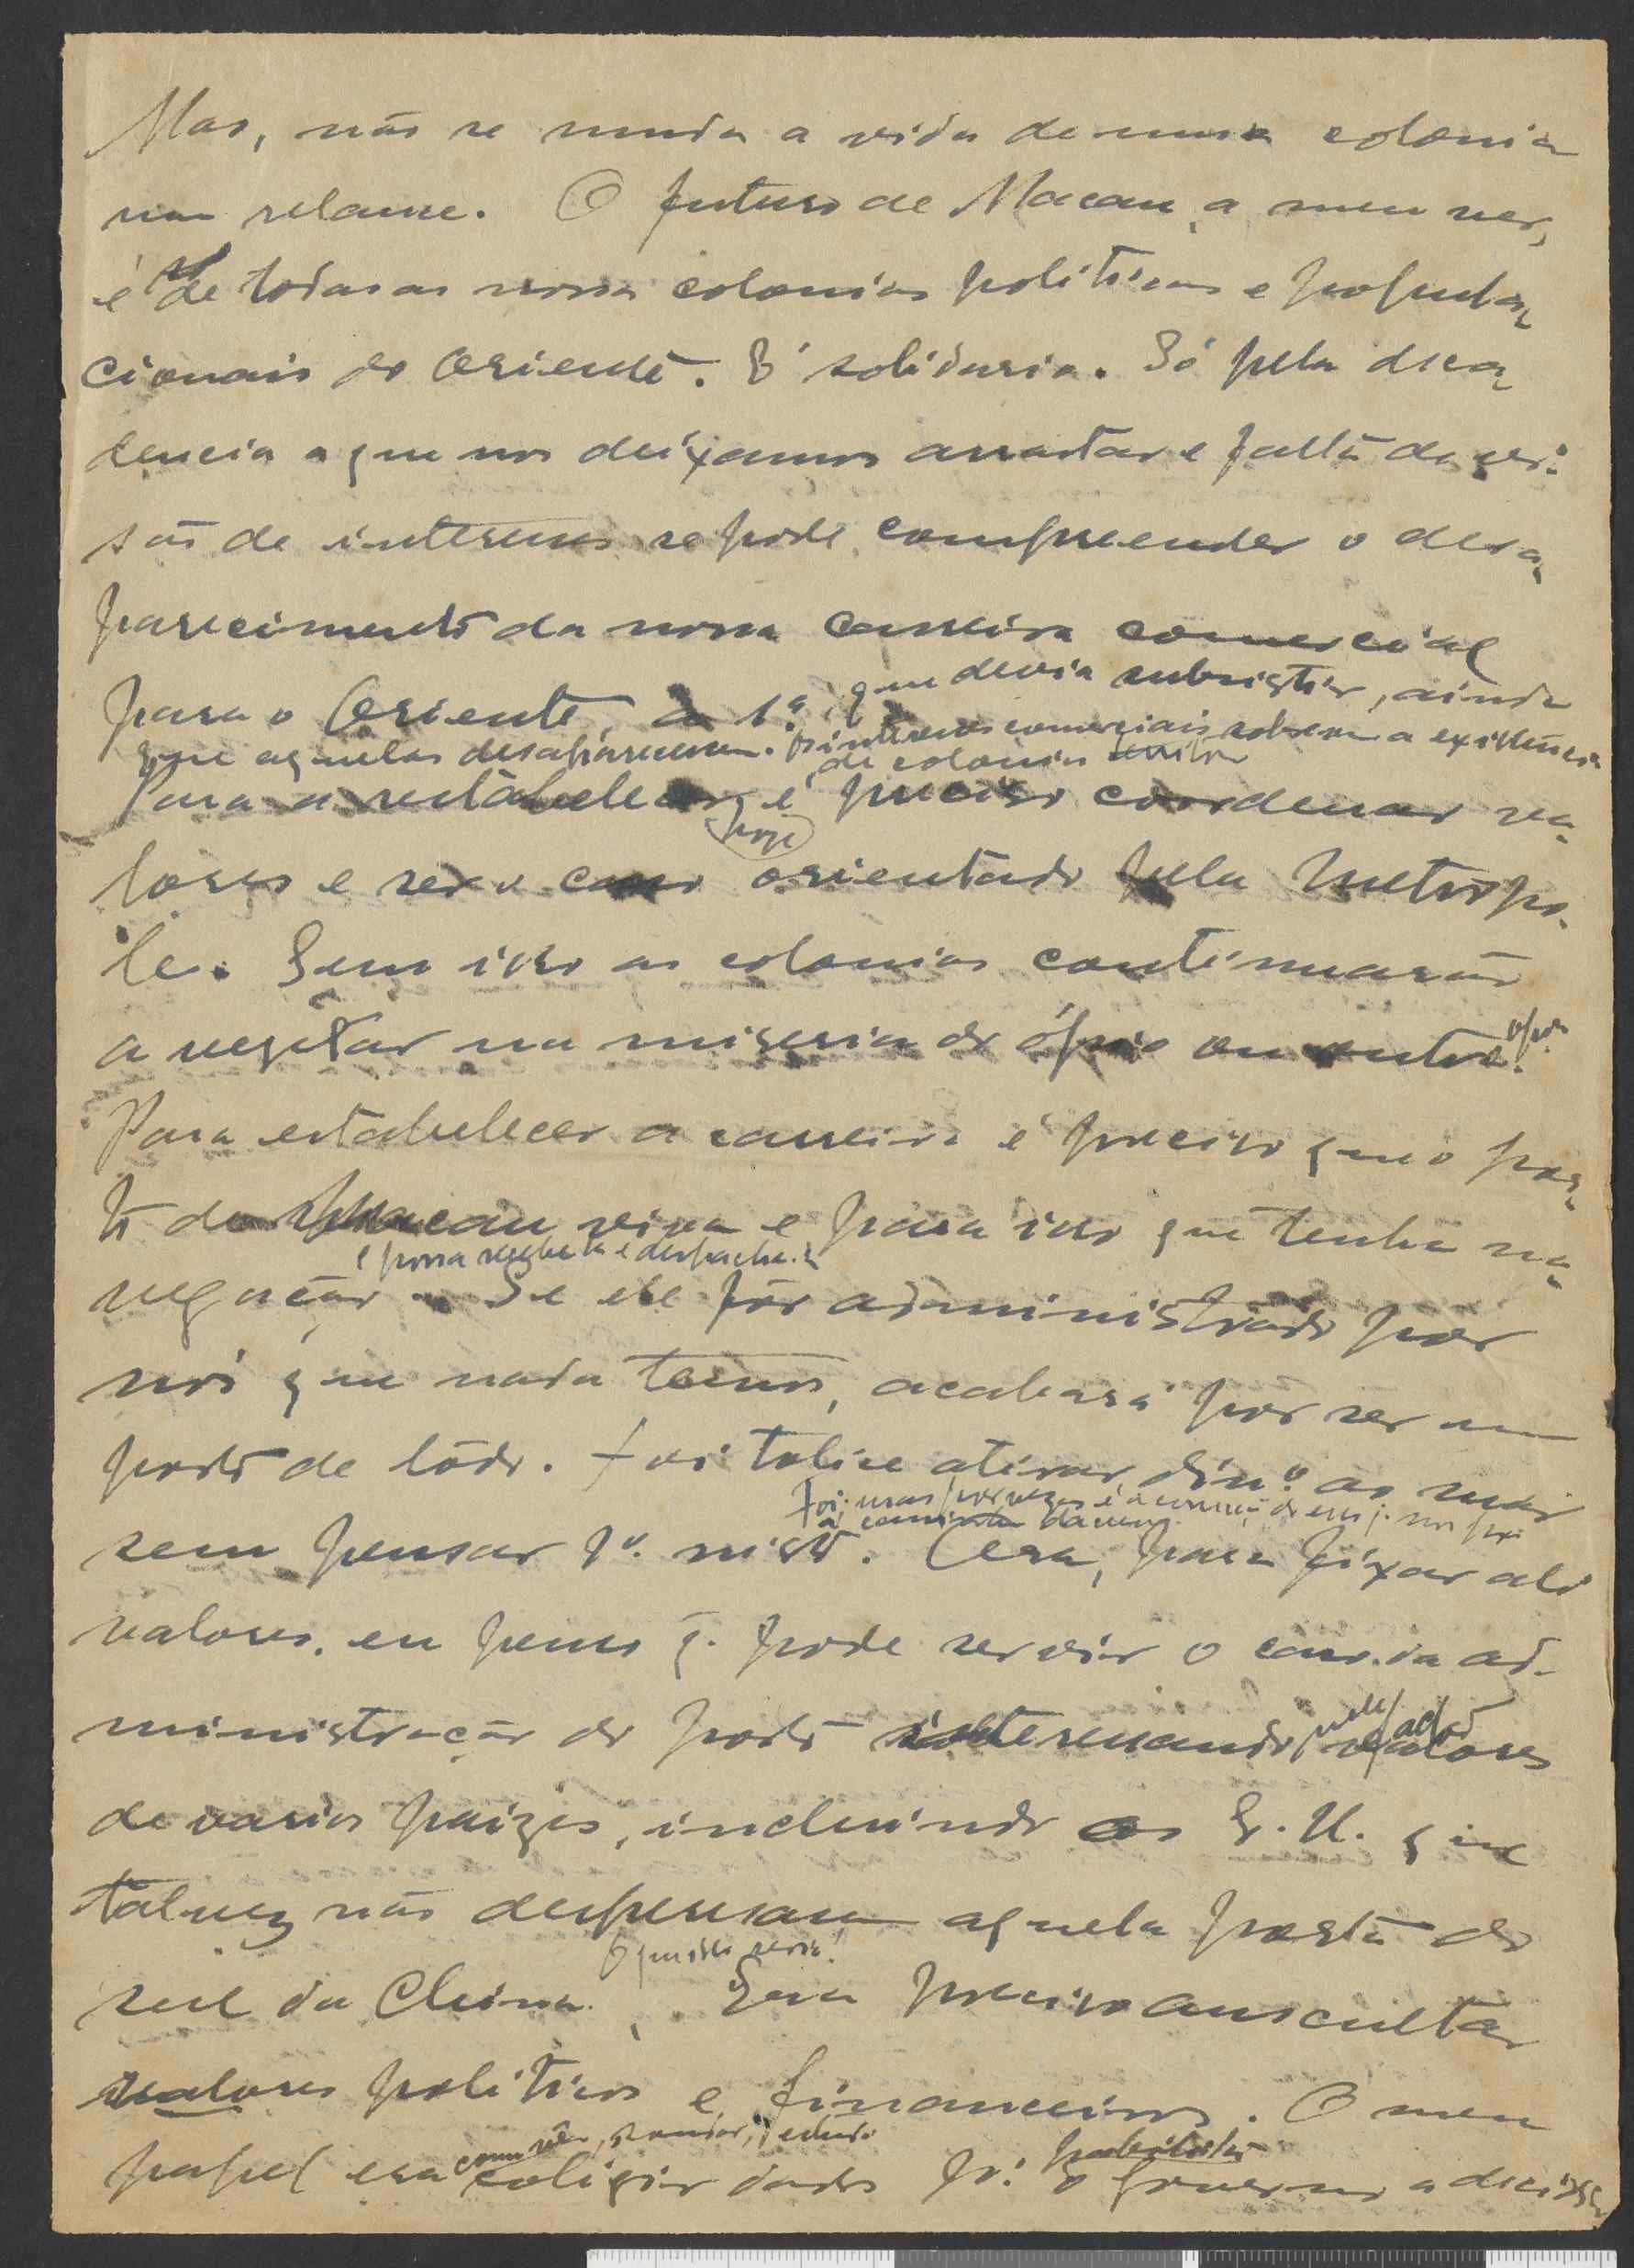 Mas, não se muda a vida de uma colonia
num relance. O futuro de Macau, a meu ver,
é o de todas as nossas colonias politicas e popula-
cionais do Oriente. É solidario. Só pela deca-
dencia a que nos deixamos arrastar e falta de vi-
são de interesses se pode compreender o desa-
parecimento da nossa carreira comercial
para o Oriente, a 1ª que devia subsistir, ainda
que aquelas desaparecessem. Os interesses comerciais sobre a existencia
de colonias
Para a restabelecer é preciso coordenar va-
hoje
lores e ser o caso orientado pela Metropo-
le. Sem isso as colonias continuarão
a vegetar na miseria do ópio ou outro
Para estabelecer a carreira é preciso que o por-
to de Macau viva e para isso que tenha na-
e possa receber e despachar
vegação. Se ele fôr administrado por
nós que nada temos, acabará por ser um
porto de lôdo. Foi tolice atirar dinº ao mar
Foi mas por vezes é
sem pensar 1º nisto. Ora, para fixar ali
valores, eu penso q. pode servir o caso da ad-
ministração do porto interessando nele valores
de varios paizes, incluindo os E. U. que
talvez não despensam aquela porta do
O que isto seria!
sul da China. Era preciso auscultar
valores politicos e financeiros. O meu
papel era coligir dados pª o Governo a decisão